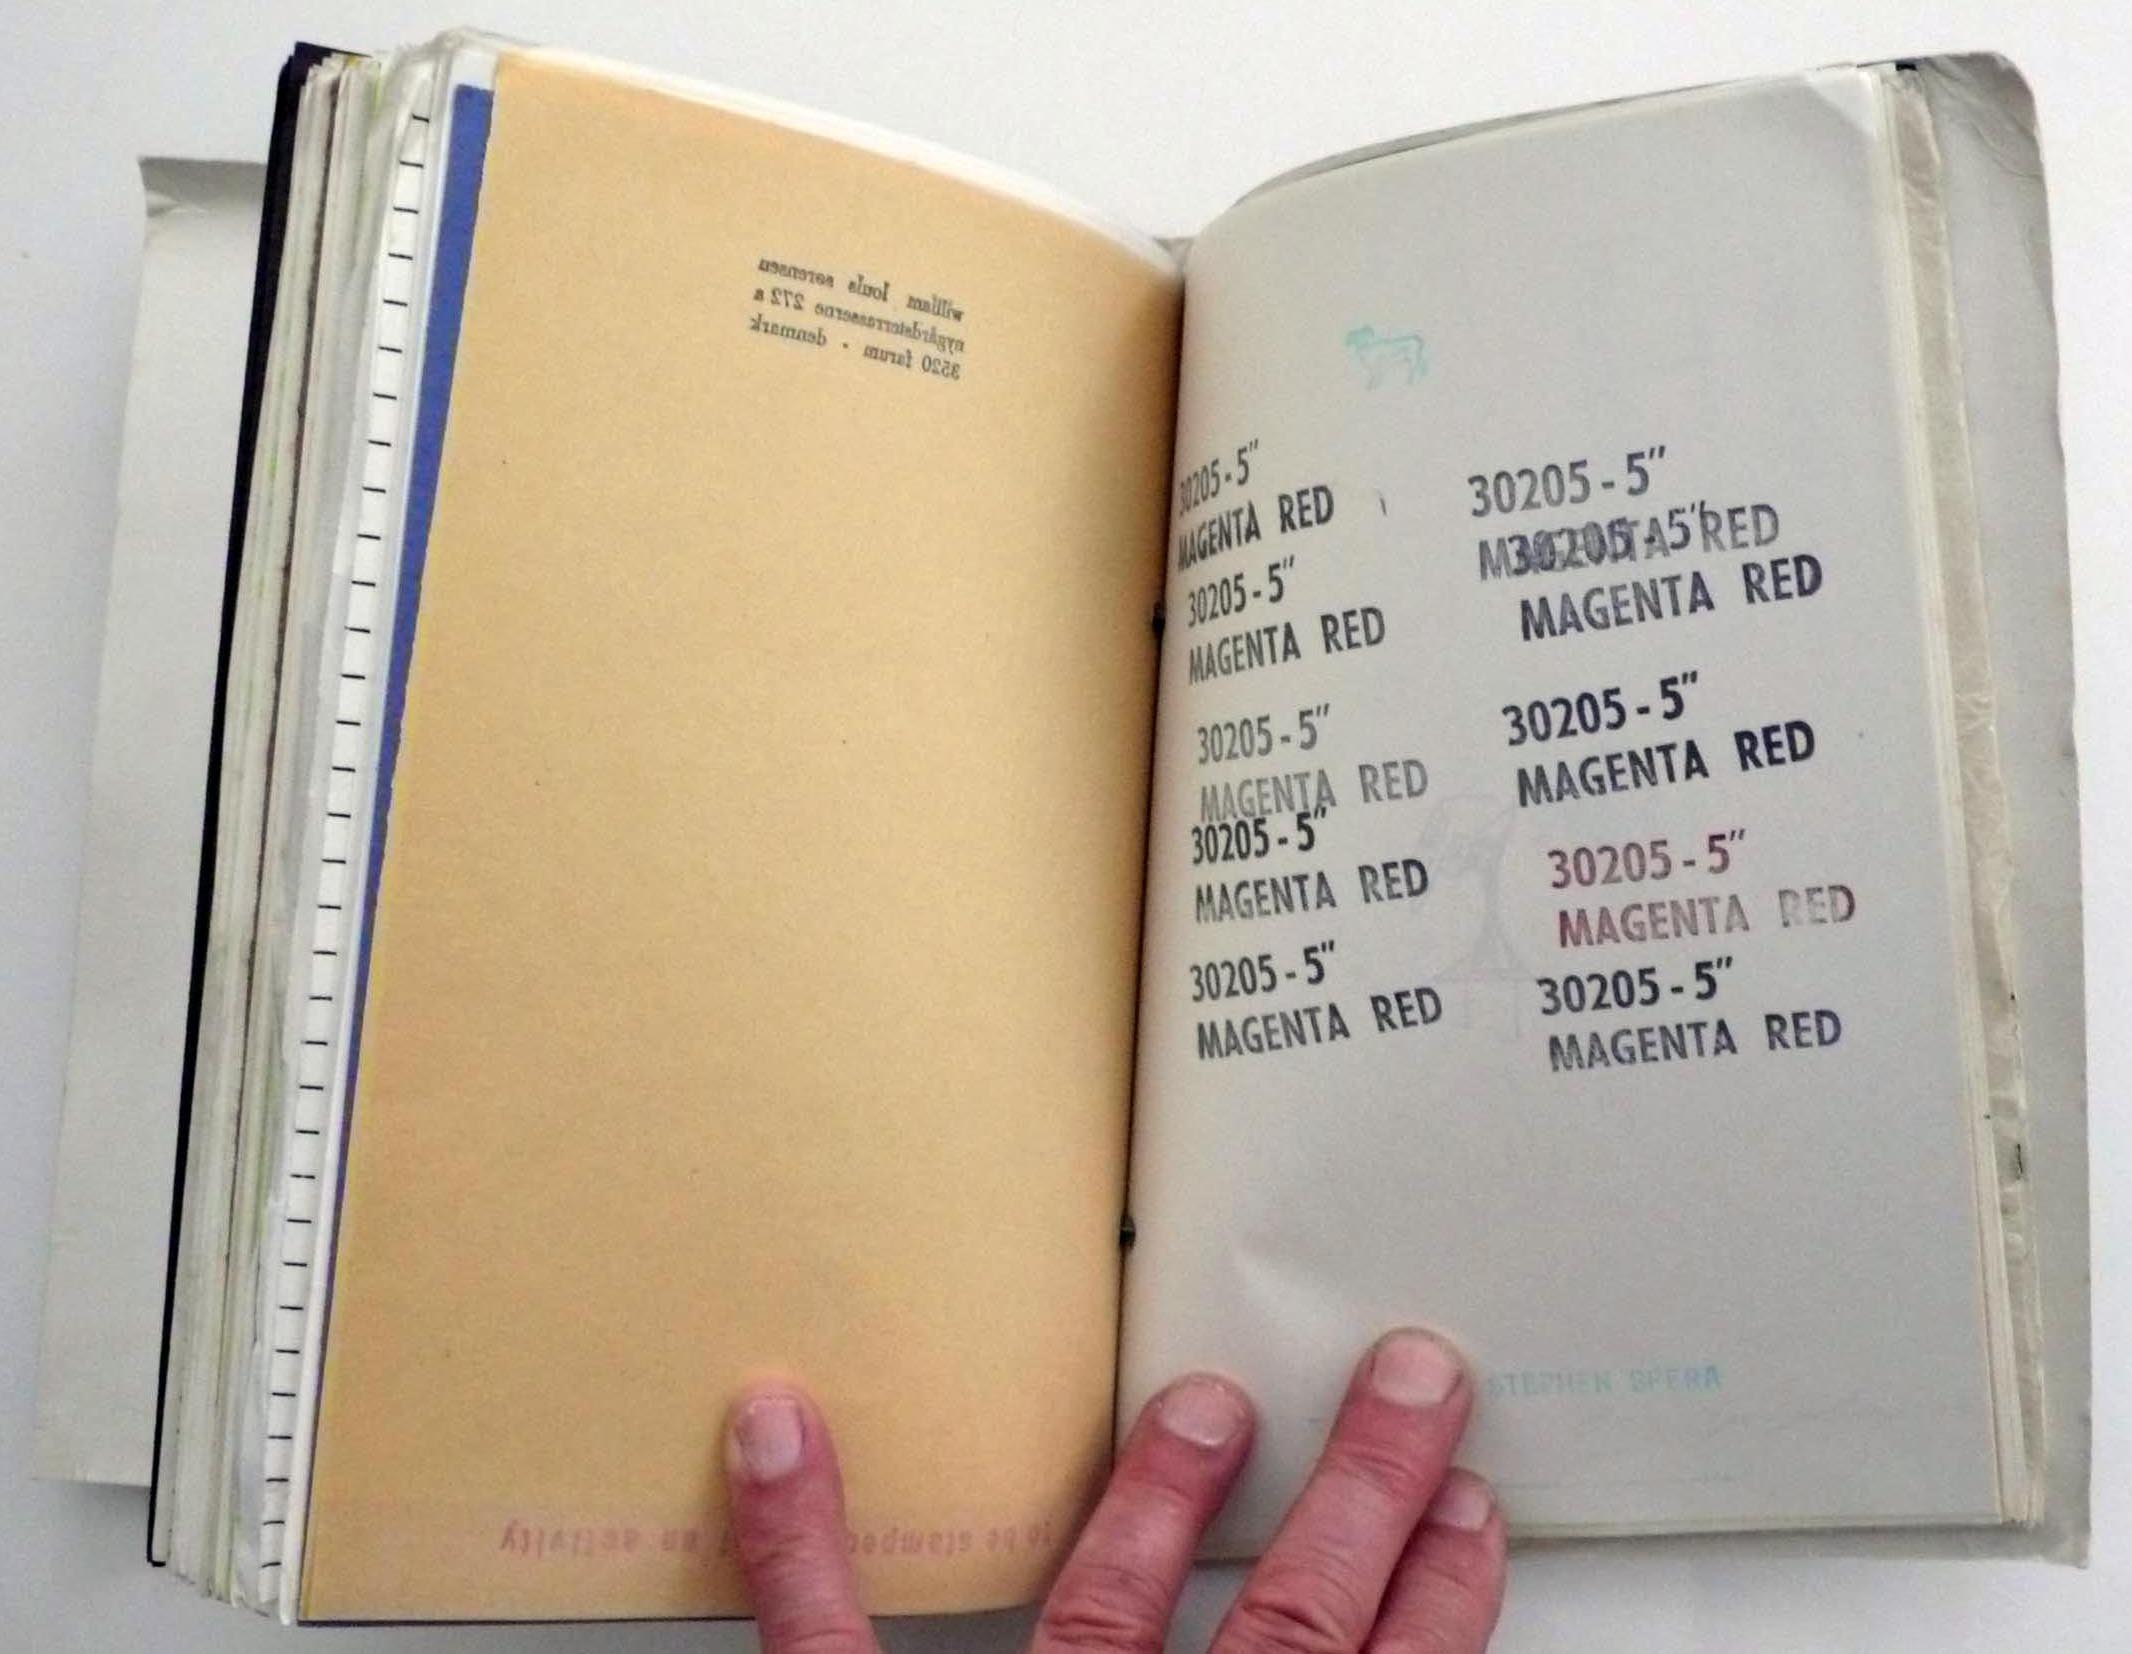 william louis sørensen
nygårdsterrasserne 272 a
3520 farum · denmark
to be stamped an activity
30205-5"
MAGENTA RED
30205-5"
MAGENTA RED
30205-5"
MAGENTA RED
30205-5"
MAGENTA RED
30205-5"
MAGENTA RED
30205-5"
MAGENTA RED
30205-5"
MAGENTA RED
30205-5"
MAGENTA RED
30205-5"
MAGENTA RED
30205-5"
MAGENTA RED
STEPHEN SPERA